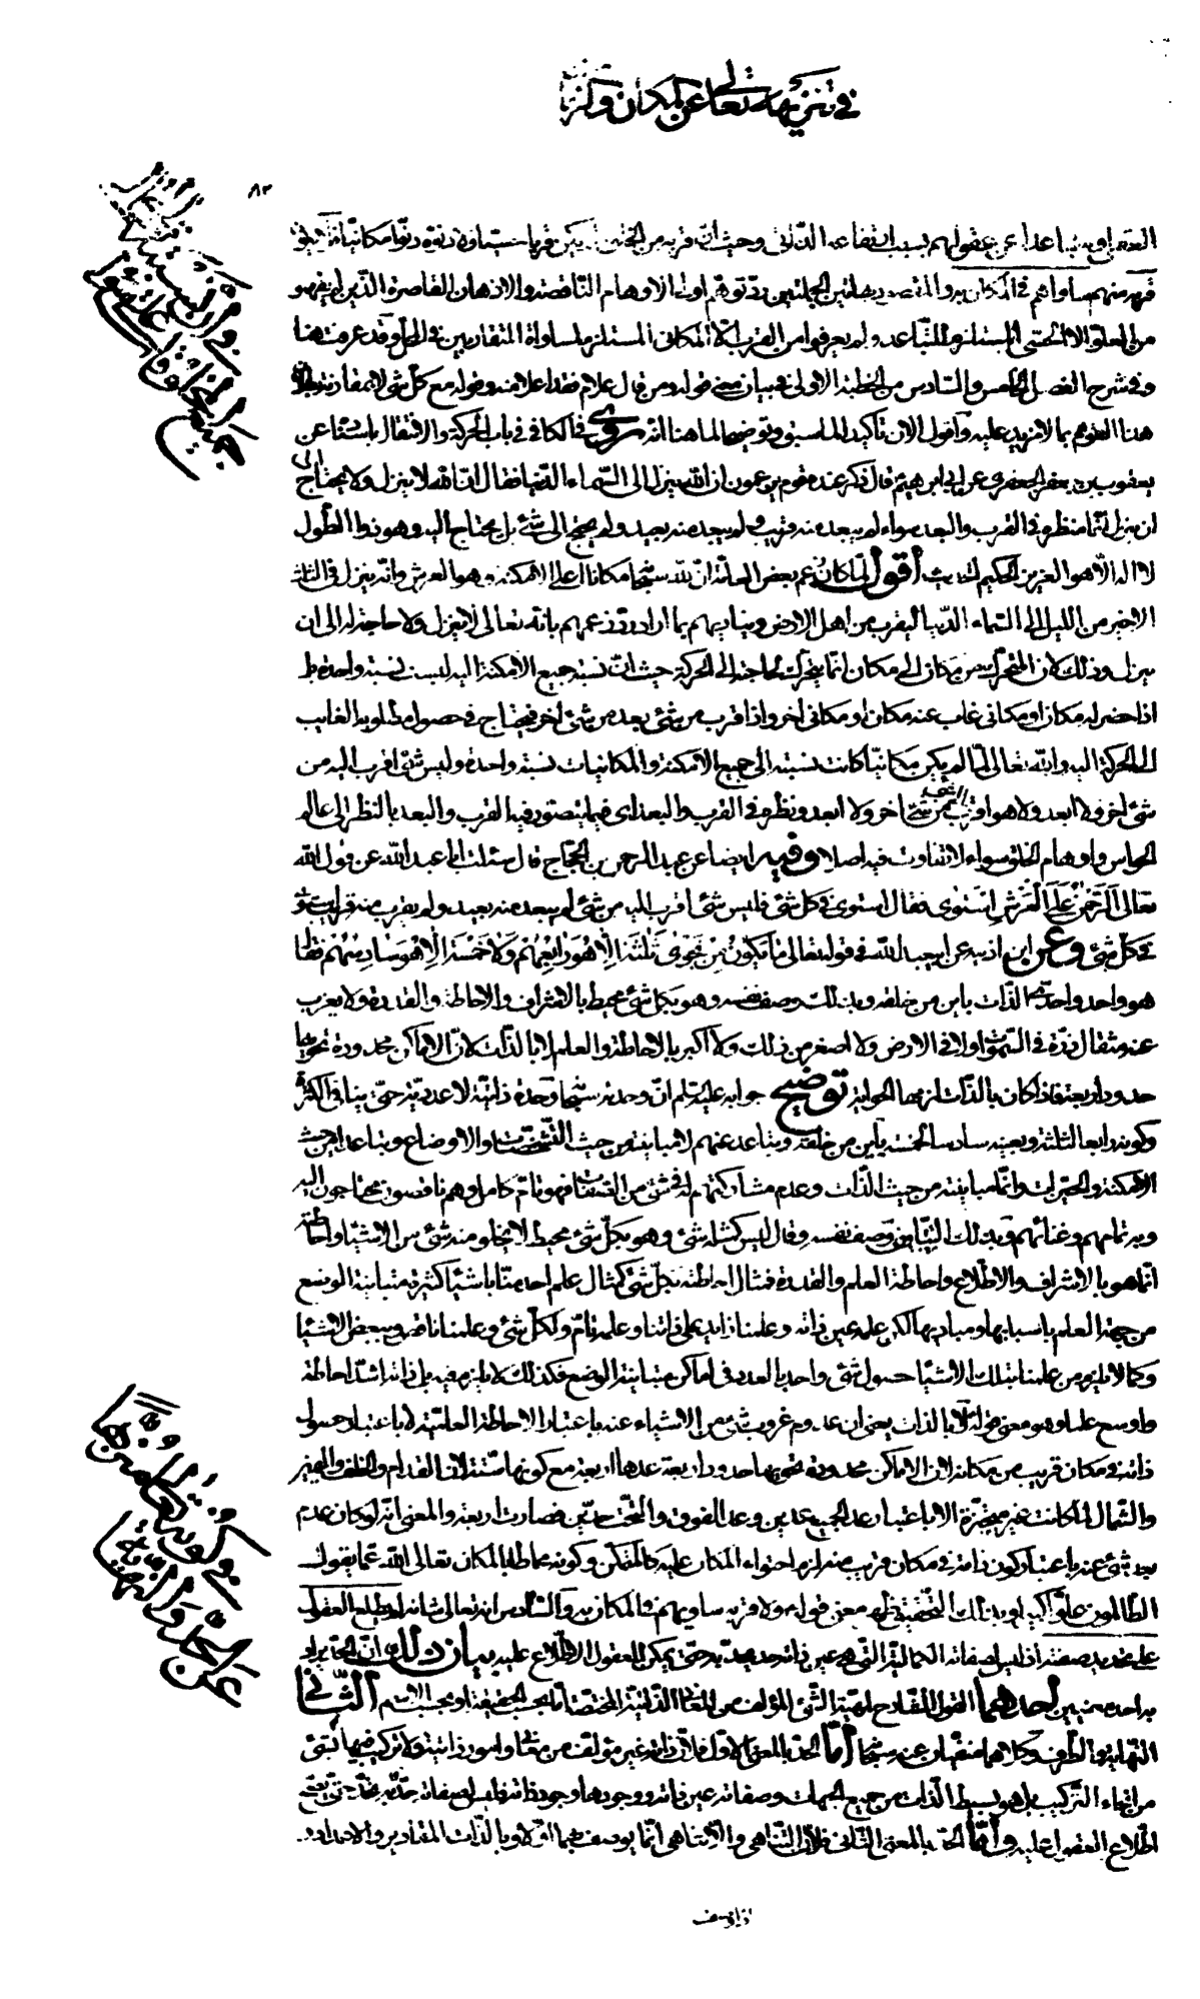 في تنزيهه تعالى عن المكان
٨٢
العقول وتباعدا عن عقولهم بسبب ارتفاعه الذاتي وحيث ان قربه من الخلق لم يكن قربا
قربه منهم ساواهم في المكان به والمقصود بهاتين الجملتين ردّ توهّم اولى الاوهام الناقصة والاذهان القاصرة الذين لم يفهموا
من العلوّ الا الحسّى المستلزم للتباعد ولم يعرفوا من القرب الّا المكانى المستلزم لمساواة المتقاربين في المحل وقد عرفت هنا
وفي شرح الفصل الخامس والسادس من الخطبة الاولى في بيان معنى قوله ومن قال علام فقد اخلا منه وقوله مع كل شى لا بمقارنة
هذا التوهم بما لا مزيد عليه وأقول الان تأكيدا لما سبق وتوضيحا لما هنا انه روى في الكافي في باب الحركة والانتقال باسناده عن
يعقوب بن جعفر الجعفرى عن ابي ابرهيم قال ذكر عنده قوم يزعمون ان الله ينزل الى السماء الدنيا فقال ان الله لا ينزل ولا يحتاج الى
ان ينزل انما منظره في القرب والبعد سواء لم يبعد منه قريب ولم يبعد منه بعيد ولم يحتج الى شئ بل يحتاج اليه وهو ذوا الطول
لا اله الا هو العزيز الحكيم الحديث أقول لما كان زعم بعض العامّة انّ لله سبحانه مكانا اعلى الامكنة وهو العرش وانّه ينزل في الثلث
الاخير من الليل الى السماء الدنيا ليقرب من اهل الارض ويناديهم بما اراد ردّ زعمهم بانه تعالى لا ينزل ولا حاجة له الى ان
ينزل وذلك لان المتحرك من مكان الى مكان انما يتحرك لحاجته الى الحركة حيث ان نسبة جميع الامكنة اليه ليست نسبة واحدة بل
اذا حضر له مكان او مكانى غاب عنه مكان او مكانى اخر واذا قرب من شئ بعد من شئ اخر فيحتاج في حصول مطلوبه الغايب
الى الحركة اليه والله تعالى لما لم يكن مكانيّا كانت نسبته الى جميع الامكنة والمكانيات نسبة واحدة وليس شئ اقرب اليه من
شئ اخر ولا ابعد ولا هو اقرب من شئ اخر ولا ابعد ونظره في القرب والبعد اى فيما يتصور فيه القرب والبعد بالنظر الى عالم
الحواس واوهام الخلق سواء لا تفاوت فيه اصلا وفيه ايضا عن عبد الرحمن بن الحجاج قال سئلت ابا عبد الله عن قول الله
تعالى الرَّحْمٰنُ عَلَى الْعَرْشِ اسْتَوٰى فقال استوى في كل شئ فليس شئ اقرب اليه من شئ لم يبعد منه بعيد ولم يقرب منه قريب استوى
في كل شئ وعن ابن اذينة عن ابيعبد الله في قوله تعالى ما يَكُونُ مِنْ نَجْوٰى ثَلٰثَةٍ اِلّا هُوَ رابِعُهُمْ وَلا خَمْسَةٍ اِلّا هُوَ سادِسُهُمْ فقال
هو واحد واحدىّ الذات باين من خلقه وبذلك وصف نفسه وهو بكل شئ محيط بالاشراف والاحاطة والقدرة ولا يعزب
عنه مثقال ذرّة في السموات ولا في الارض ولا اصغر من ذلك ولا اكبر بالاحاطة والعلم لا بالذات لان الاماكن محدودة تحويها
حدود اربعة فاذا كان بالذات لزمها الحواية توضيح جوابه عليه السلم انّ وحدته سبحانه وحدة ذاتيّة لا عدديّة حتى ينافى الكثرة
وكونه رابعا لثلثة وبعينه سادسا لخمسة باين من خلقه ويتباعد عنهم لا مباينة من حيث التشخصات والاوضاع وتباعدا من حيث
الامكنة والحيّزات وانما مباينته من حيث الذات وعدم مشاركتهم له في شئ من الصفات فهو تامّ كامل وهم ناقصون محتاجون اليه
وبه تمامهم وغنائهم وبذلك التباين وصف نفسه وقال ليس كمثله شئ وهو بكل شئ محيط لا يخلو منه شئ من الاشياء واحاطته
انما هو بالاشراف والاطلاع واحاطة العلم والقدرة فمثال احاطته بكل شئ كمثال علم احد منّا باشياء كثيرة متباينة الوضع
من جهة العلم باسبابها ومباديها لكن علمه عين ذاته وعلمنا زايد على ذاتنا وعلمه تامّ ولكل شئ وعلمنا ناقص وببعض الاشياء
وكما لا يلزم من علمنا بتلك الاشياء حصول شئ واحد بالعدد فى اماكن متباينة الوضع فكذلك لا يلزم فيه بل ذاته اشدّ احاطة
واوسع علما وهو معنى قوله لا بالذات يعنى ان عدم عزوب شئ من الاشياء عنه باعتبار الاحاطة العلميّة لا باعتبار حصول
ذاته في مكان قريب من مكانه لان الاماكن محدودة تحويها حدود اربعة عدها اربعة مع كونها ستة لان القدام والخلف واليمين
والشمال لما كانت غير متحيّزة الا باعتبار عد الجميع حدين وعد الفوق والتحت حدّين فصارت اربعة والمعنى انّه لو كان عدم
بعد شئ عنه باعتبار كون ذاته في مكان قريب منه لزم احتواء المكان عليه كالمتمكن وكونه محاطا بالمكان تعالى الله عمّا يقول
الظالمون علوّا كبيرا وبذلك التحقيق ظهر معنى قوله ولا قربه ساويهم في المكان به والسادس انه تعالى شانه لم يطلع العقول
على تحديد صفته اذ ليس لصفاته الكمالية التى هى عين ذاته حد حتى يمكن للعقول الاطلاع عليه بيان ذلك انّ الحدّ يراد
به احد معنيين أحدهما القول الشارح لمهيّة الشئ المؤلف من المعانى الذاتيّة المختصة امّا بحسب الحقيقة او بحسب الاسم الثانى
النهاية والطرف وكلاهما منفيان عنه سبحانه أمّا الحدّ بالمعنى الاوّل فلانّ ذاته غير مؤلفة من معانى وامور ذاتية ولا تركيب فيها
من انحاء التركيب بل هو بسيط الذات من جميع الجهات وصفاته عين ذاته ووجودها وجود ذاته فليس لصفاته حدّ
اطلاع العقول عليه وأمّا الحدّ بالمعنى الثانى فلان التناهى واللاتناهى انما يوصف بهما اوّلا وبالذات المقادير والاعداد و
اذا وصف